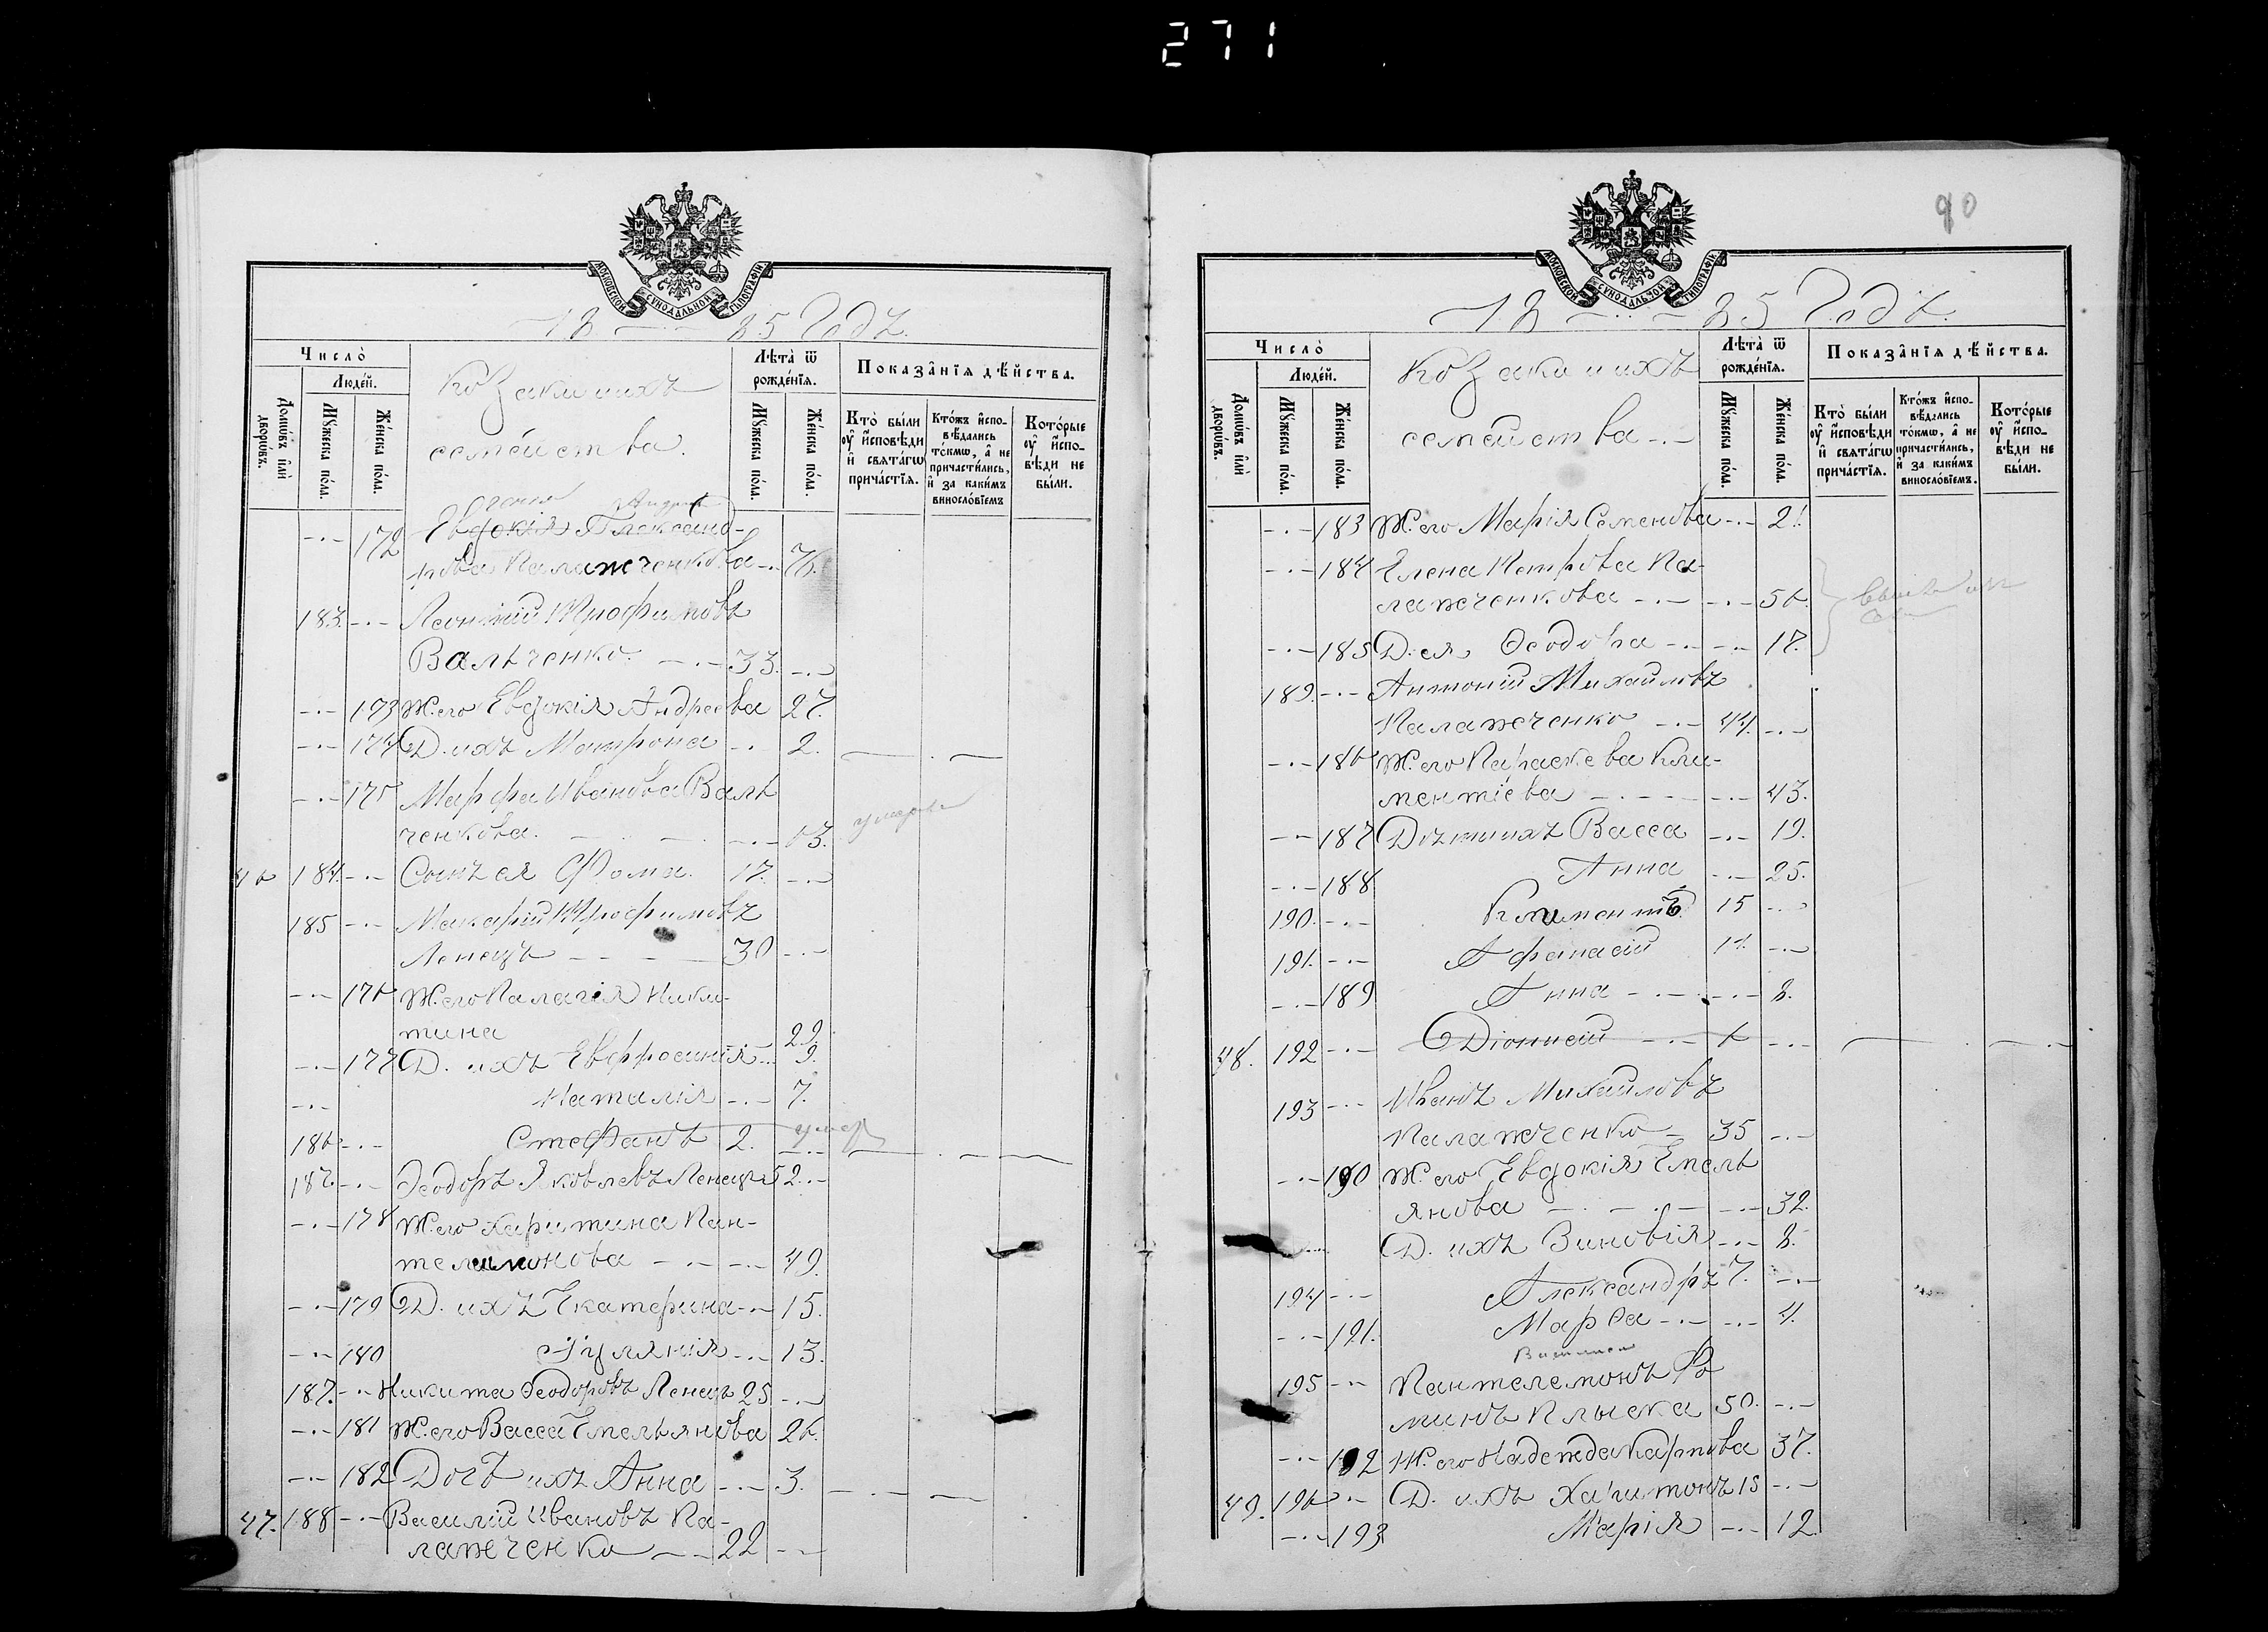 271
МОСКОВСКОЙ СУНОДАЛЬНОЙ ТИПОГРАФІИ.
18 -·- 85 Годъ.
Число̀
Людéй.
Домѡ́въ и҆лѝ дворѡ́въ.
Мꙋ́жеска по́ла.
Же́нска по́ла.
Козаки и ихъ
семейства.
Лѣ́та ѿ рожде́нїѧ.
Мꙋ́жеска по́ла.
Же́нска по́ла.
Показа̑нїѧ дѣ́йства.
Кто̀ бы́ли
ᲂу҆ и҆́сповѣди
и҆ свѧта́гѡ
прича́стїѧ.
Кто́жъ и҆спо-
вѣ́дались
то́кмѡ, а҆ не
причасти́лись,
и҆ за каки́мъ
винослóвїемъ
Кото́рые
ᲂу҆ и҆спо-
вѣди не
бы́ли.
-·- 172 Евдокія Александ-
рова Палажченкова -·- 76.
183 -·- Леонтій Трофимовъ
Вальченко -·- 33 -·-
-·- 173 Ж. его Евдокія Андреева 27.
-·- 174 Д. ихъ Матрона -·- 2.
-·- 175 Марфа Иванова Валь
ченкова. -·- 63. умерла
46 184 -·- Сынъ ея Фома. 17. -·-
185 -·- Макарій Трофимовъ
Ленецъ -·- 30 -·-
-·- 176 Ж. его Палагія Ники-
тина 29.
-·- 177 Д. ихъ Евфросинія -·- 9.
-·- Наталія -·- 7.
186 -·- Стефанъ 2. умер
187. -·- Ѳеодоръ Яковлевъ Ленецъ 52 -·-
-·- 178 Ж. его Харитина Пан-
телимонова -·- 49.
-·- 179 Д. ихъ Екатерина -·- 15.
-·- 180 Іулянія -·- 13.
187. -·- Никита Ѳеодоровъ Ленецъ 25 -·-
-·- 181 Ж. его Васса Емельянова 26.
-·- 182 Дочь ихъ Анна -·- 3.
47. 188 -·- Василій Ивановъ Па-
лажченко -·- 22 -·-
90
МОСКОВСКОЙ СУНОДАЛЬНОЙ ТИПОГРАФІИ.
18 -·- 85 Годъ.
Число̀
Людéй.
Домѡ́въ и҆лѝ дворѡ́въ.
Мꙋ́жеска по́ла.
Же́нска по́ла.
Козаки и ихъ
семейства -·-
Лѣ́та ѿ рожде́нїѧ.
Мꙋ́жеска по́ла.
Же́нска по́ла.
Показа̑нїѧ дѣ́йства.
Кто̀ бы́ли
ᲂу҆ и҆́сповѣди
и҆ свѧта́гѡ
прича́стїѧ.
Кто́жъ и҆спо-
вѣ́дались
то́кмѡ, а҆ не
причасти́лись,
и҆ за каки́мъ
винослóвїемъ.
Кото́рые
ᲂу҆ и҆спо-
вѣди не
бы́ли.
-·- 183 Ж. его Марія Семенова -·- 21.
-·- 184 Елена Петрова Па-
лажченкова -·- 56.
-·- 185 Д. ея Ѳеодора -·- 17.
189. -·- Антоній Михайловъ
Палажченко -·- 44. -·-
-·- 186 Ж. его Параскева Кли-
ментіева -·- 43.
-·- 187 Дѣти ихъ Васса -·- 19.
-·- 188 Анна -·- 25.
190. -·- Климентъ 15 -·-
191. -·- Афанасій 14. -·-
-·- 189 Анна -·- 8.
48. 192 -·- Діонисій -·- 6 -·-
193 -·- Иванъ Михайловъ
Палажченко 35 -·-
-·- 190 Ж. его Евдокія Емель
янова -·- 32.
Д. ихъ Зиновія -·- 8.
194 -·- Александръ 7. -·-
-·- 191. Марѳа -·- 4.
195 -·- Пантелемонъ Ѳо
минъ Плыска 50. -·-
-·- 192 Ж. его Надежда Карпова 37.
49. 196 -·- Д. ихъ Харитонъ 15 -·-
-·- 193 Марія -·- 12.